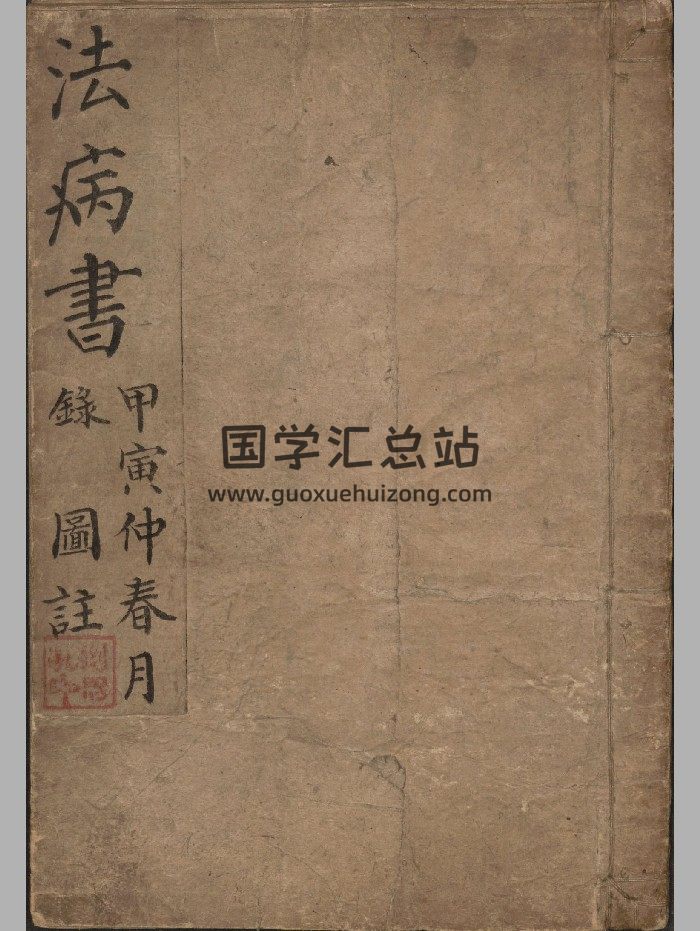 法病書
甲寅仲春月
錄圖註
国学汇总站
www.guoxuehuizong.com